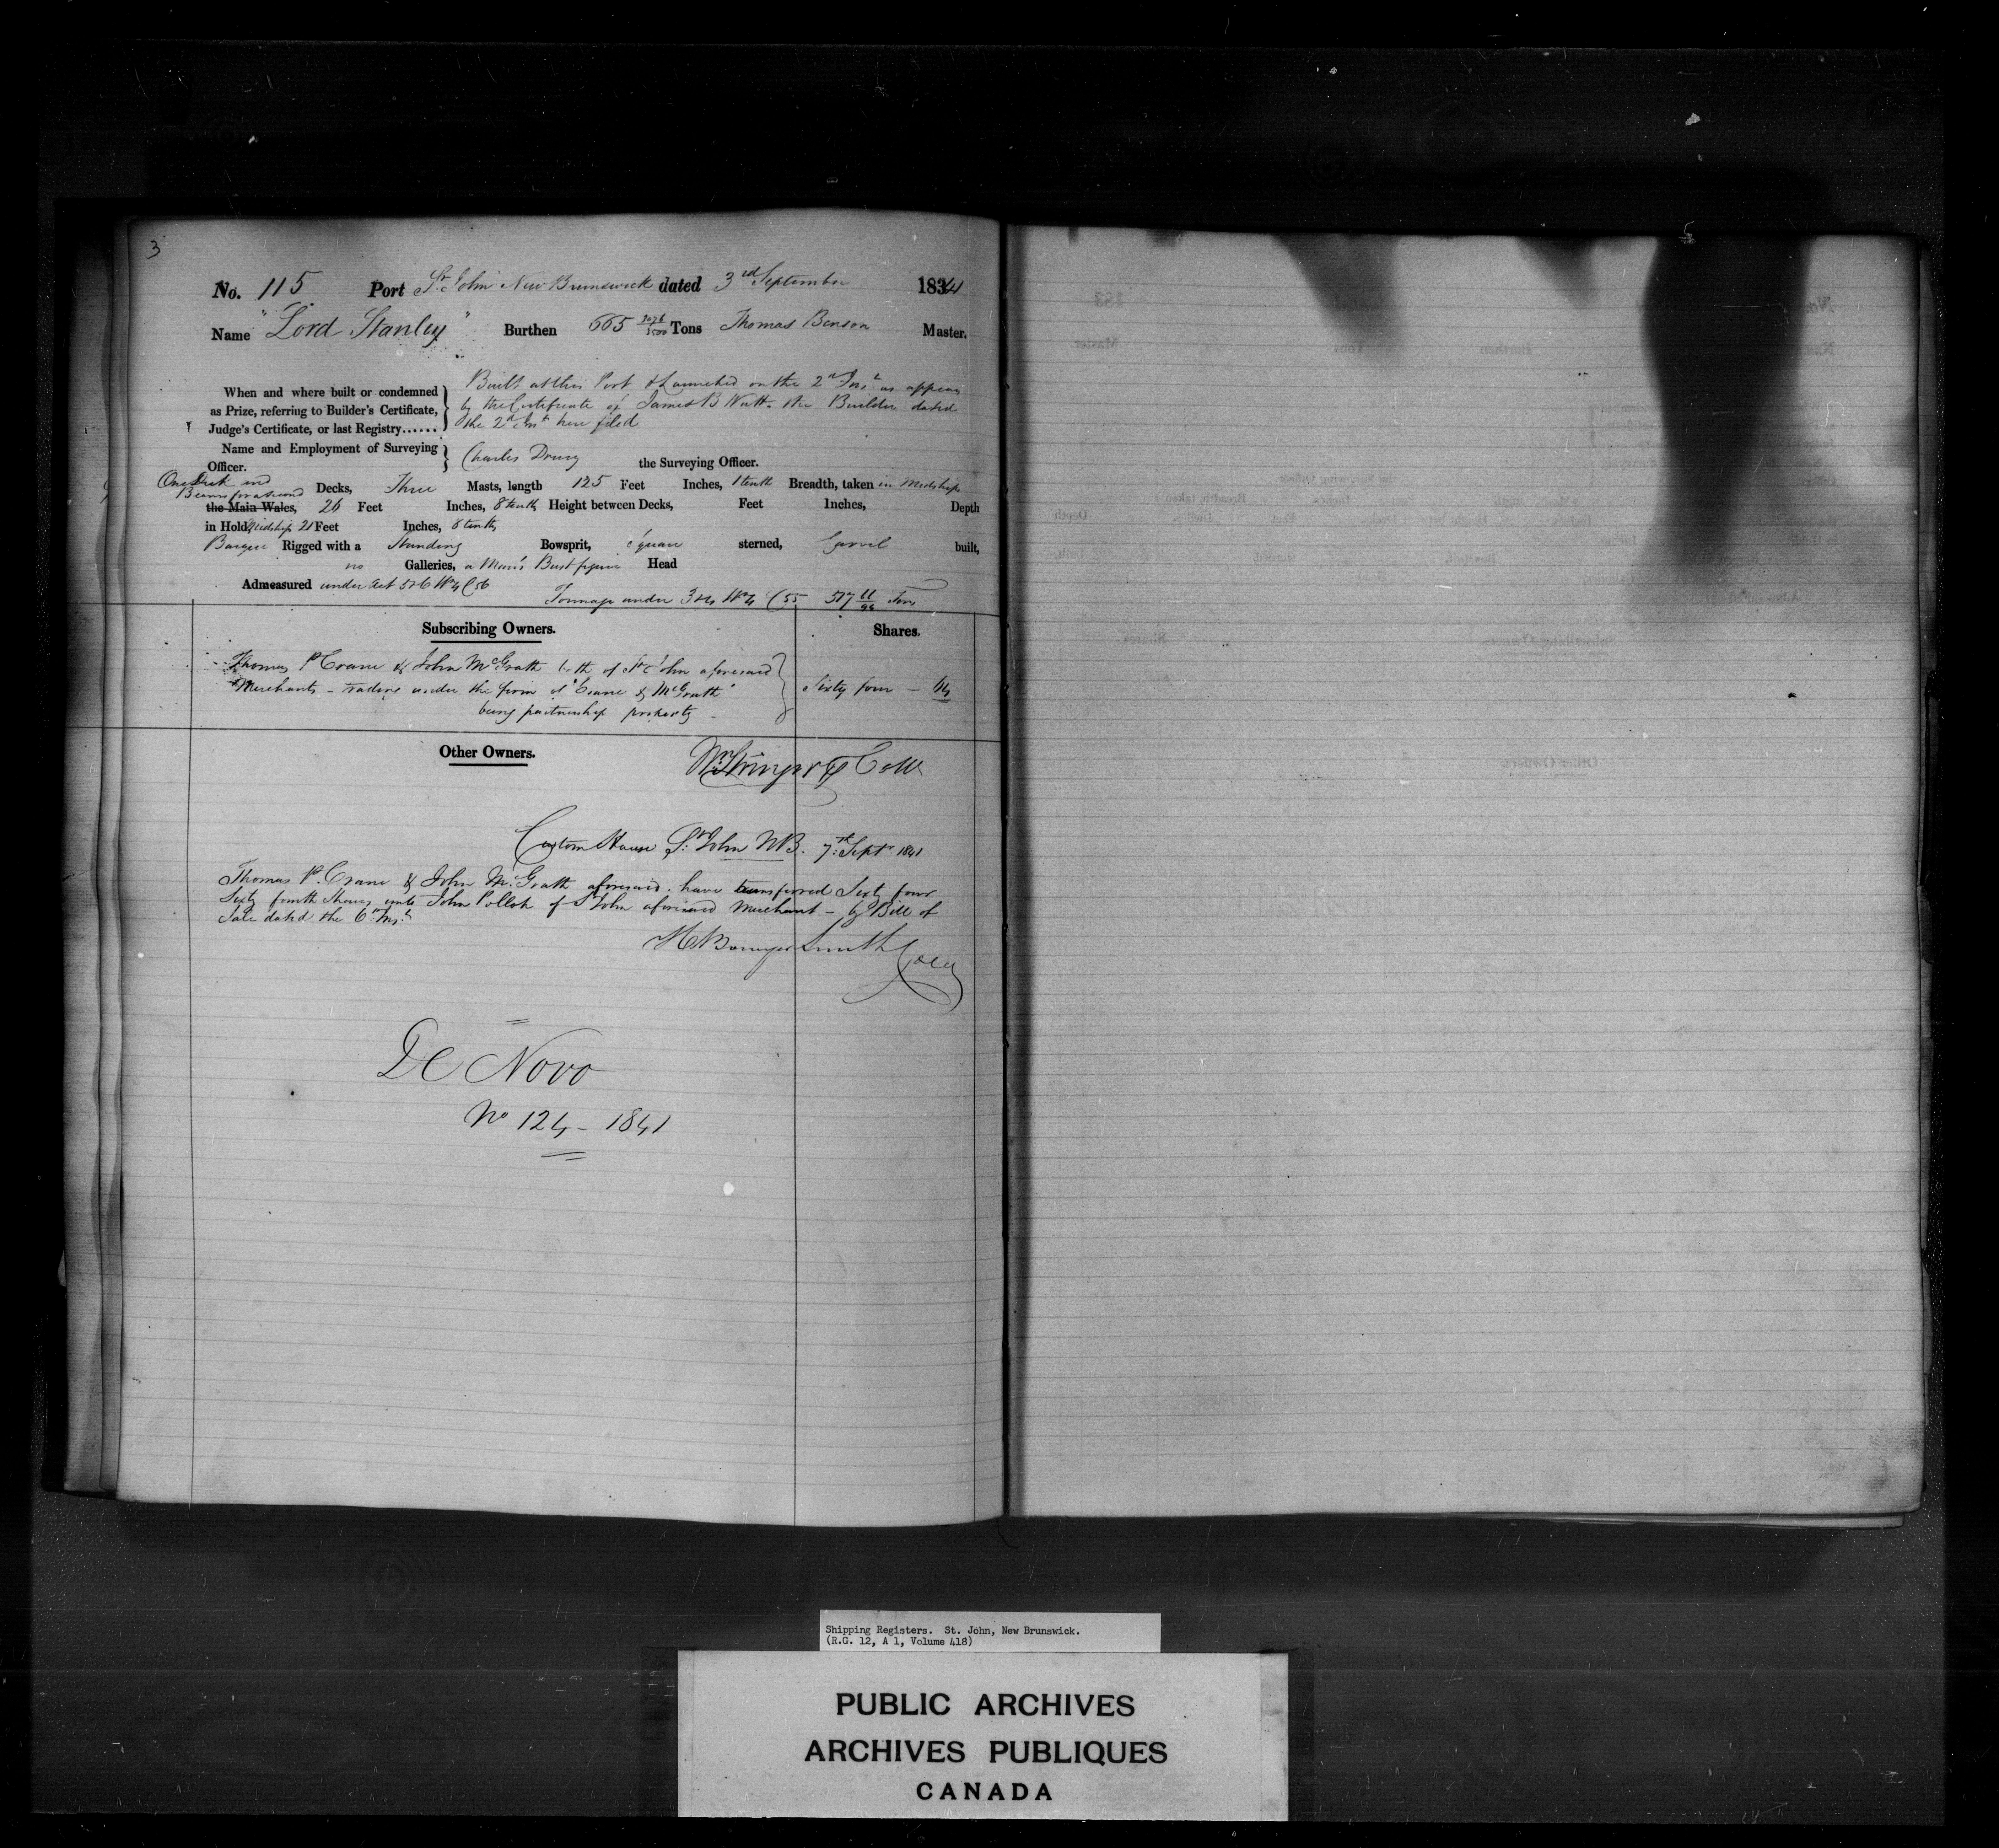 3
No. 115 Port St. John New Brunswick dated 3rd September 1841
Name "Lord Stanley" Burthen 665 Tons Thomas Benson Master.
When and where built or condemned as Prize, referring to Builder's Certificate, Judge's Certificate, or last Registry......
Built at this Port & Launched on the 2nd Inst as appears
by the Certificate of James B the Builder dated
the 2nd Inst here filed
Name and Employment of Surveying Officer. Charles Drury the Surveying Officer.
One Deck and
Beams for a second Decks, Three Masts, length 125 Feet Inches, 1 tenth Breadth, taken in Midships
the Main Wales, 26 Feet Inches, 8 tenths Height between Decks, Feet Inches, Depth
in Hold Midships 21 Feet Inches, 8 tenths
Barque Rigged with a Standing Bowsprit, Square sterned, Carvel built,
no Galleries, a Man's Bust figure Head
Admeasured under Act 5 & 6 Wm 4 C 56
Tonnage under 3 & 4 Wm 4 C 55 517 Tons
Subscribing Owners. Shares.
Thomas P Crane & John McGrath both of St John aforesaid
Merchants - trading under the firm of "Crane & McGrath" Sixty four - 64
being partnership property -
Other Owners.
Custom House St. John NB. 7th Septr 1841
Thomas P. Crane & John McGrath aforesaid have transferred Sixty four
Sixty fourth Shares unto John Pollok of St John aforesaid Merchant - by Bill of
Sale dated the 6th Inst
H Bowyer Smith
De Novo
No 124 - 1841
Shipping Registers. St. John, New Brunswick.
(R.G. 12, A 1, Volume 418)
PUBLIC ARCHIVES
ARCHIVES PUBLIQUES
CANADA